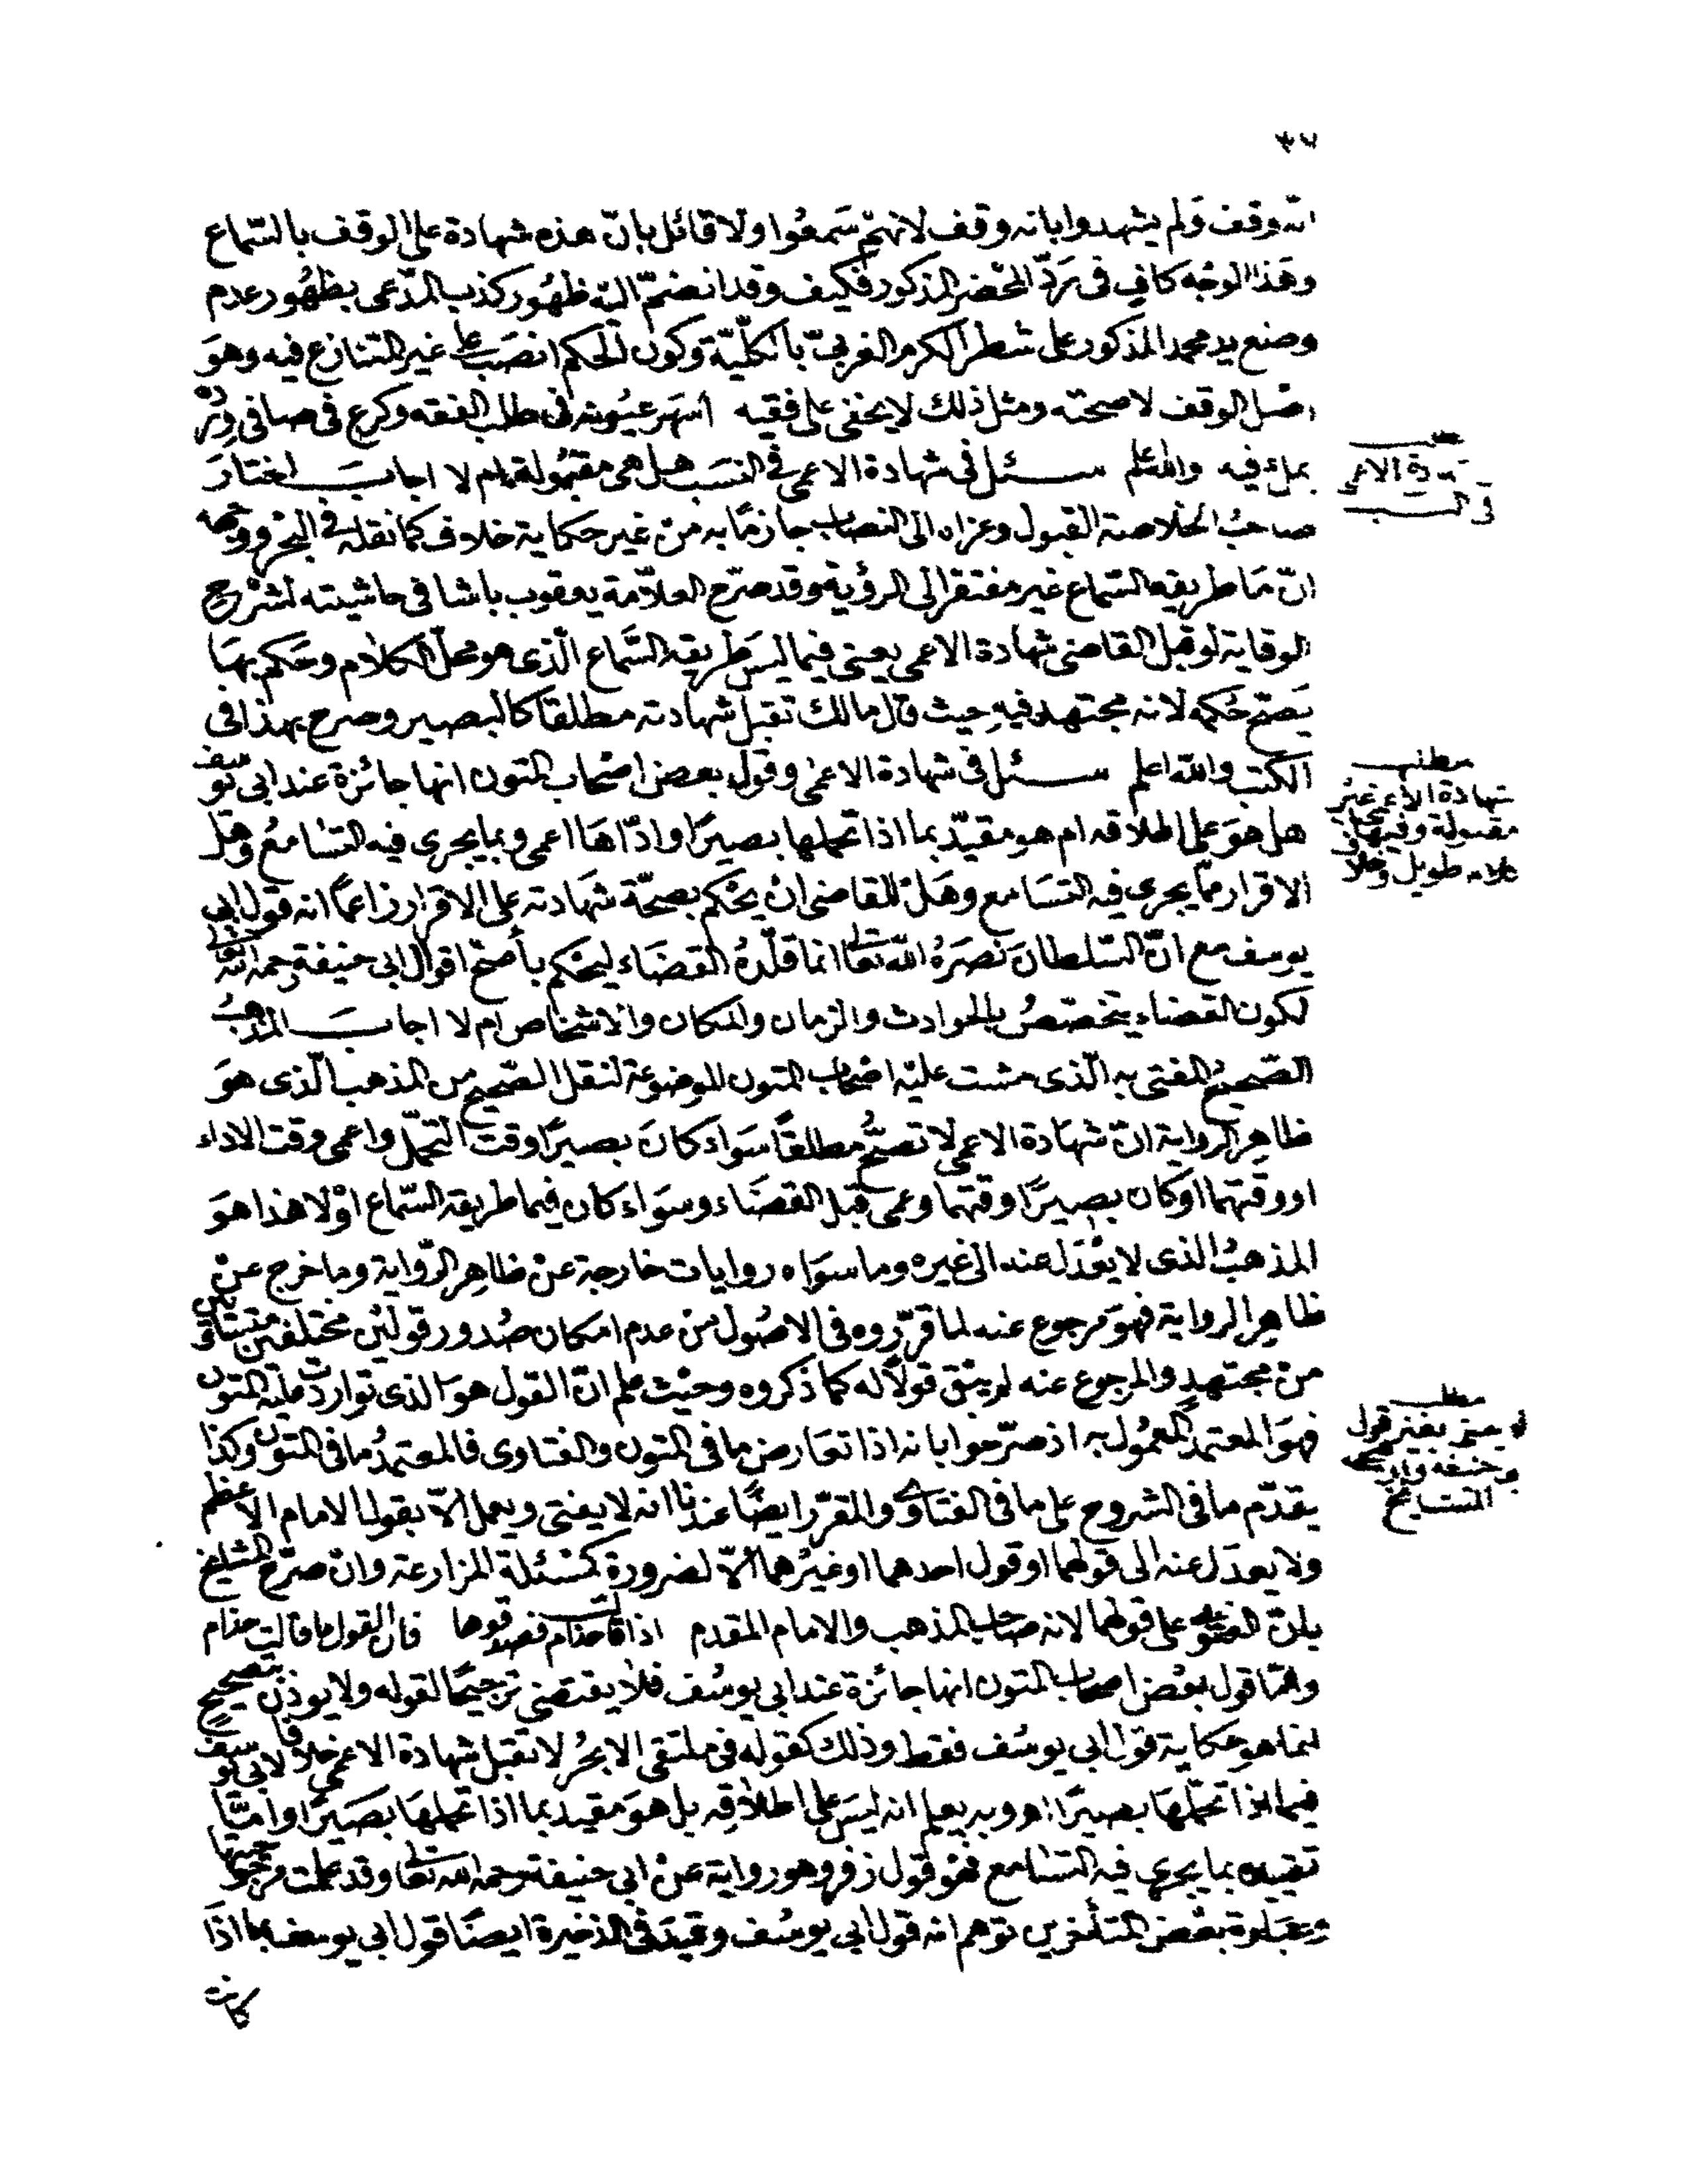 انه وقف ولم يشهدوا بانه وقف لانهم سَمعُوا ولا قائل بانّ هذه شهادة على الوقف بالسّماع
وهَذا الوجْه كافٍ فى رَدّ المحْضر المذكور فكيف وقد انضمّ اليْه ظهُور كذب المدّعى بظهُور عدم
وضع يد محمد المذكور على شطر الكرم الغربىّ بالكليّة وكون الحكم انصَبّ على غير المتنازع فيه وهوَ
اصْل الوقف لا صحته ومثل ذلك لا يخفى على فقيه اسْهَر عيُونه فى طلب الفقه وكرع فى صافى
بملئ فيه والله اعلم سئل فى شهادة الاعمى فى النسَب هل هى مقبُولة ام لا اجابَ اختارَ
صاحبُ الخلاصة القبول وعزاه الى النصاب جازمًا به منْ غير حكاية خلاف كما نقله فى البحْر ووجهه
انّ مَا طريقه السّماع غير مفتقر الى الرؤية وقد صرّح العلاّمة يعقوب باشا فى حاشيته لشرْح
الوقاية لو قبل القاضى شهادة الاعمى يعنى فيما ليسَ طريقه السَّماع الّذى هو محلّ الكلام وحكم بهَا
يَصحّ حُكمه لانه مجتهد فيهِ حيث قال مالك تقبل شهادته مطلقًا كالبصير وصرح بهذا فى
الكتب والله اعلم سئل فى شهادة الاعمٰى وقول بعض اصْحاب المتون انها جائزة عند ابى يوسف
هل هوَ على اطلاقه ام هو مقيّد بما اذا تحملها بصيرًا وادّاهَا اعمى وبما يجرى فيه التسَامعُ وهَل
الاقرار ممّا يجرى فيه التسَامع وهَلْ للقاضى انْ يحْكم بصحّة شهَادته على الاقرار زاعمًا انه قول ابى
يوسف مع انّ السّلطانَ نصَرَهُ الله تعالى انما قلّدهُ القضَاء ليحْكم بأصَحّ اقوال ابى حنيفة رحمه الله تعالى
لكون القضاء يتخصّصُ بالحوادث والزمان والمكان والاشخاص ام لا اجابَ المذهبُ
الصّحيحُ المفتى به الّذى مشت عليْه اصْحاب المتون الموضوعة لنقل الصّحيح من المذهب الّذى هوَ
ظاهِر الرواية انّ شهَادة الاعمى لا تصحُّ مطلقًا سَواء كانَ بصيرًا وقت التحمّل واعمى وقت الاداء
او وقتهما او كان بصيرًا وقتهما وعمى قبل القضَاء وسوَاء كان فيما طريقه السّماع اوْ لا هذا هوَ
المذهبُ الذى لا يعْدَل عنه الى غيره وما سوَاه روايات خارجة عنْ ظاهِر الرّواية وما خرج عنْ
ظاهِر الرواية فهوَ مرجوع عنه لما قرّروه فى الاصُول منْ عدم امكان صُدور قولينْ مختلفين متساويين
منْ مجتهدٍ والمرجوع عنه لم يبْق قولاً له كما ذكروه وحيْث علم انّ القول هوَ الذى تواردت عليْه المتون
فهوَ المعتمد المعمُول به اذ صرّحوا بانه اذا تعَارض ما فى المتون والفتاوى فالمعتمدُ ما فى المتون وكذا
يقدّم ما فى الشروح على ما فى الفتاوى والمقرّر ايضًا عندنا انه لا يفتى ويعمل الاّ بقول الامام الاعظم
ولا يعدَل عنه الى قولهما او قول احدهما اوغيرُهما الاّ لضرورة كمسْئلة المزارعة وانْ صرّح المشايخ
بانّ الفتوى على قولهما لانه صاحب المذهب والامام المقدم اذا قالت حذام فصدقوها فان القول ما قالت حذام
وامّا قول بعْض اصحاب المتون انها جائزة عند ابى يوسُف فلا يقتضى ترجيحًا لقوله ولا يوذن بتصحيح
انما هو حكاية قول ابى يوسُف فقط وذلك كقوله فى ملتقى الابحُر لا تقبل شهادة الاعمى خلافًا لابى يوسف
فيما اذا تحمّلهَا بصيرًا اهـ وبه يعلم انه ليسَ على اطلاقِه بل هوَ مقيد بما اذا تحملهَا بصَيرًا وامّا
تقييده بما يجرى فيه التسَامع فهْو قول زفر وهو رواية عنْ ابى حنيفة رحمه الله تعالى وقد علمت مرجوحيتها
وعبَارة بعْض المتأخرين توهم انه قول ابى يوسُف وقيدَ فى الذخيرة ايضًا قول ابى يوسف بما اذَا
كانت
شهادة الاعمى
فى النسب
مطلب
شهادة الاعمى غيرُ
مقبولة وفيها
كلام طويل
مطلب
لا يفتى بغير قول
ابى حنيفة وان صححه
المشايخ